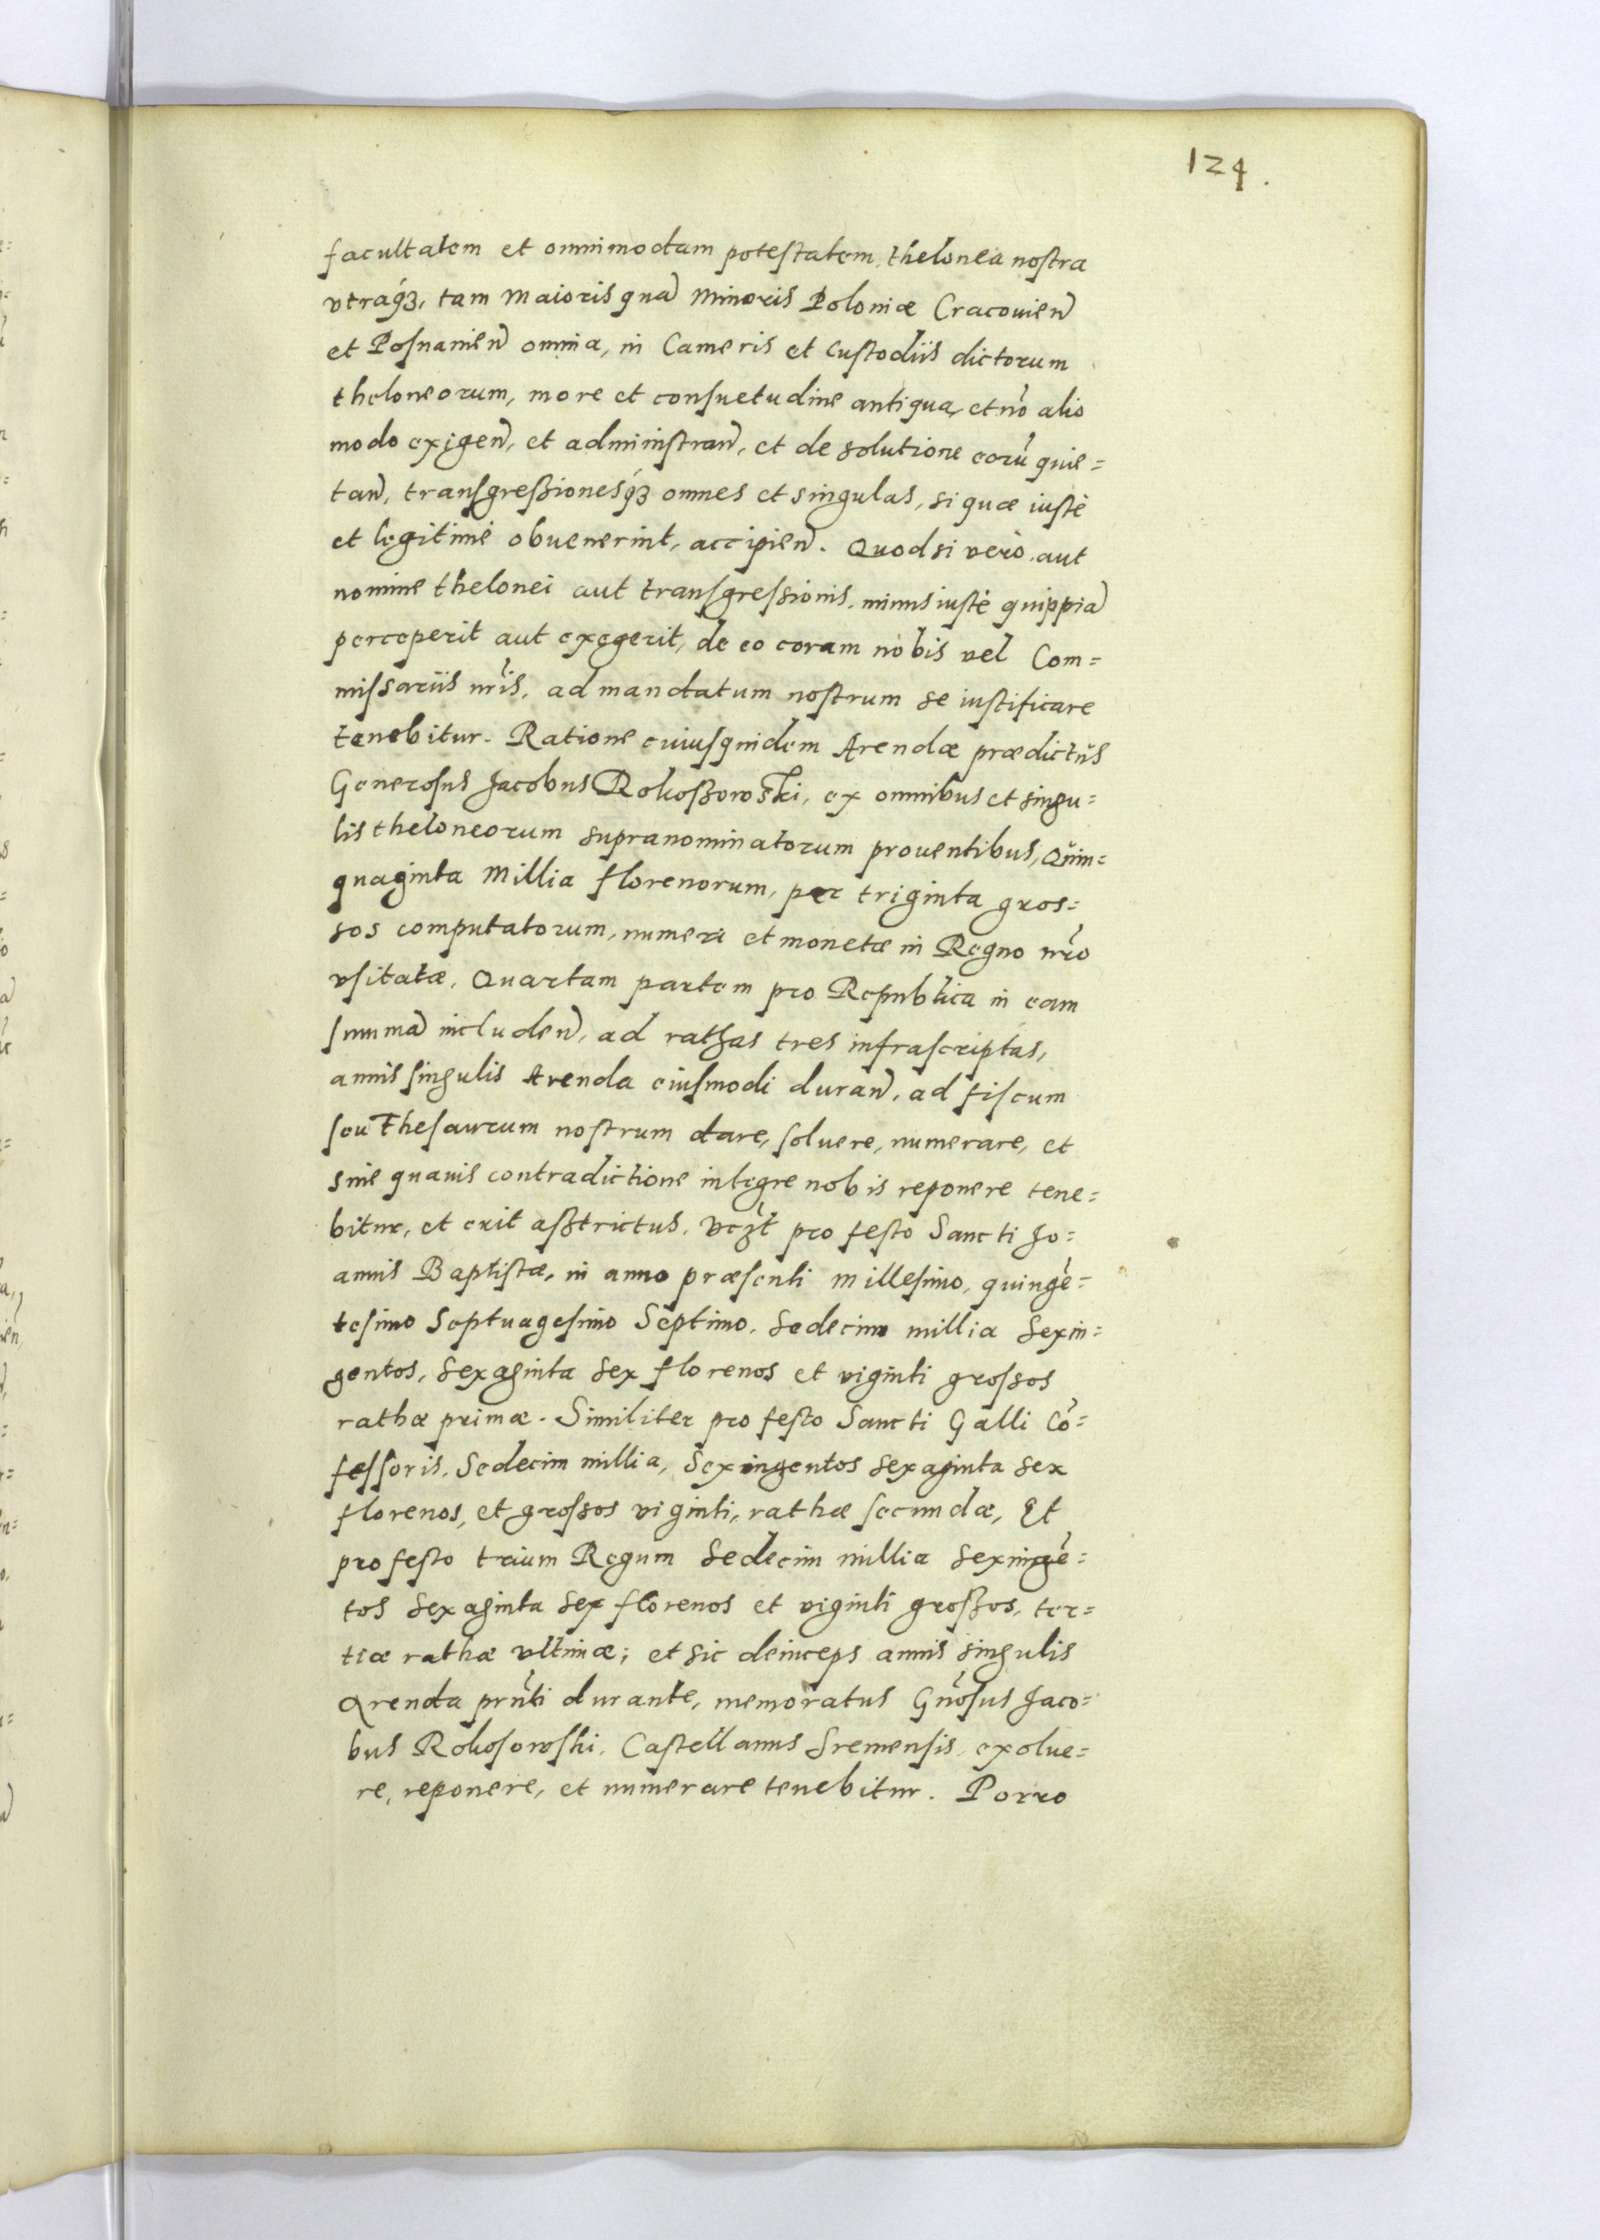 124.
facultatem et omnimodam potestatem, thelonea nostra
vtraq́ꝫ, tam Maioris quã Minoris Poloniæ Cracouieñ
et Posnanieñ omnia, in Cameris et Custodiis dictorum
theloneorum, more et consuetudine antiqua, et nõ alio
modo exigeñ, et administrañ, et de solutione eorũ quie=
tañ, transgreßionesq́ꝫ omnes et singulas, si quæ iustè
et legitimè obuenerint, accipieñ. Quod si verò aut
nomine thelonei aut transgressionis, minus iustè quippiã
perceperit aut exegerit, de eo coram nobis vel Com=
missariis nr̃is, ad mandatum nostrum se iustificare
tenebitur. Ratione cuiusquidem Arendæ prædictus
Generosus Jacobus Rokoßowski, ex omnibus et singu=
lis theloneorum supranominatorum prouentibus, Quin=
quaginta Millia florenorum, per triginta gros=
sos computatorum, numeri et monetæ in Regno nr̃o
vsitatæ, Quartam partem pro Republica in eam
summã includeñ, ad rathas tres infrascriptas,
annis singulis Arenda eiusmodi durañ, ad fiscum
seu Thesaurum nostrum dare, soluere, numerare, et
sine quauis contradictione integre nobis reponere tene=
bitur, et erit astrictus, vcꝫt̃ pro festo Sancti Jo=
annis Baptistæ, in anno præsenti Millesimo, quingẽ=
tesimo Septuagesimo Septimo, Sedecim millia Sexin=
gentos, Sexaginta Sex florenos et viginti grossos
rathæ primæ. Similiter pro festo Sancti Galli Cõ=
fessoris, Sedecim millia, Sexingentos sexaginta sex
florenos, et grossos viginti, rathæ secundæ, Et
pro festo trium Regum Sedecim millia sexingẽ=
tos Sexaginta Sex florenos et viginti großos, ter=
tiæ rathæ vltimæ; et sic deinceps annis singulis
Arenda prñti durante, memoratus Gñosus Jaco=
bus Rokosowski, Castellanus Sremensis, exolue=
re, reponere, et numerare tenebitur. Porro